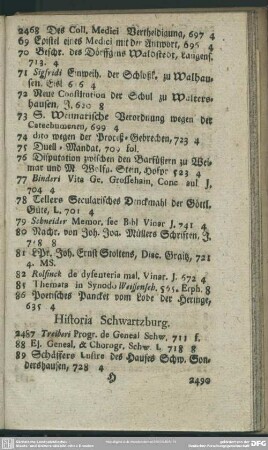 2468 Des Coll. Medici Vertheidigung, 697 4
69 Epistel eines Medici mit der Antwort, 696 4
70 Beschr. des Dörffgens Waldstedt, Langens.
713. 4
71 Sigfridi Einweih. der Schloßk. zu Walhau-
sen. Eisl. 616 4
72 Neue Constitution der Schul zu Walters-
hausen, J. 620 8
73 S. Weimarische Verordnung wegen der
Catechumenen, 699 4
74 dito wegen der Proceß-Gebrechen, 723 4
75 Duell-Mandat, 709 fol.
76 Disputation zwischen den Barfüßern zu Wei-
mar und M. Wolfg. Stein, Hofpr 523 4
77 Binderi Vita Ge. Grosshain, Conc aul J,
704 4
78 Tellers Secularisches Denckmahl der Göttl.
Güte, L. 701 4
79 Schneider Memor. soc Bibl Vinar J. 741 4
80 Nachr. von Joh. Joa. Müllers Schriften, J.
718 8
81 LPr. Joh. Ernst Stoltens, Disc. Graitz, 721
4. MS.
82 Rolfinck de dysenteria mal. Vinar. J. 672 4
85 Themata in Synodo Weissenseb. 595. Erph. 8
86 Poetisches Pancket vom Lobe der Heringe,
635 4
Historia Schwartzburg.
2487 Treiberi Progr. de Geneal Schw. 711 f.
88 Ej. Geneal. & Chorogr. Schw. L. 718 8
89 Schäffers Lustre des Hauses Schw. Son-
dershausen, 728 4
2490